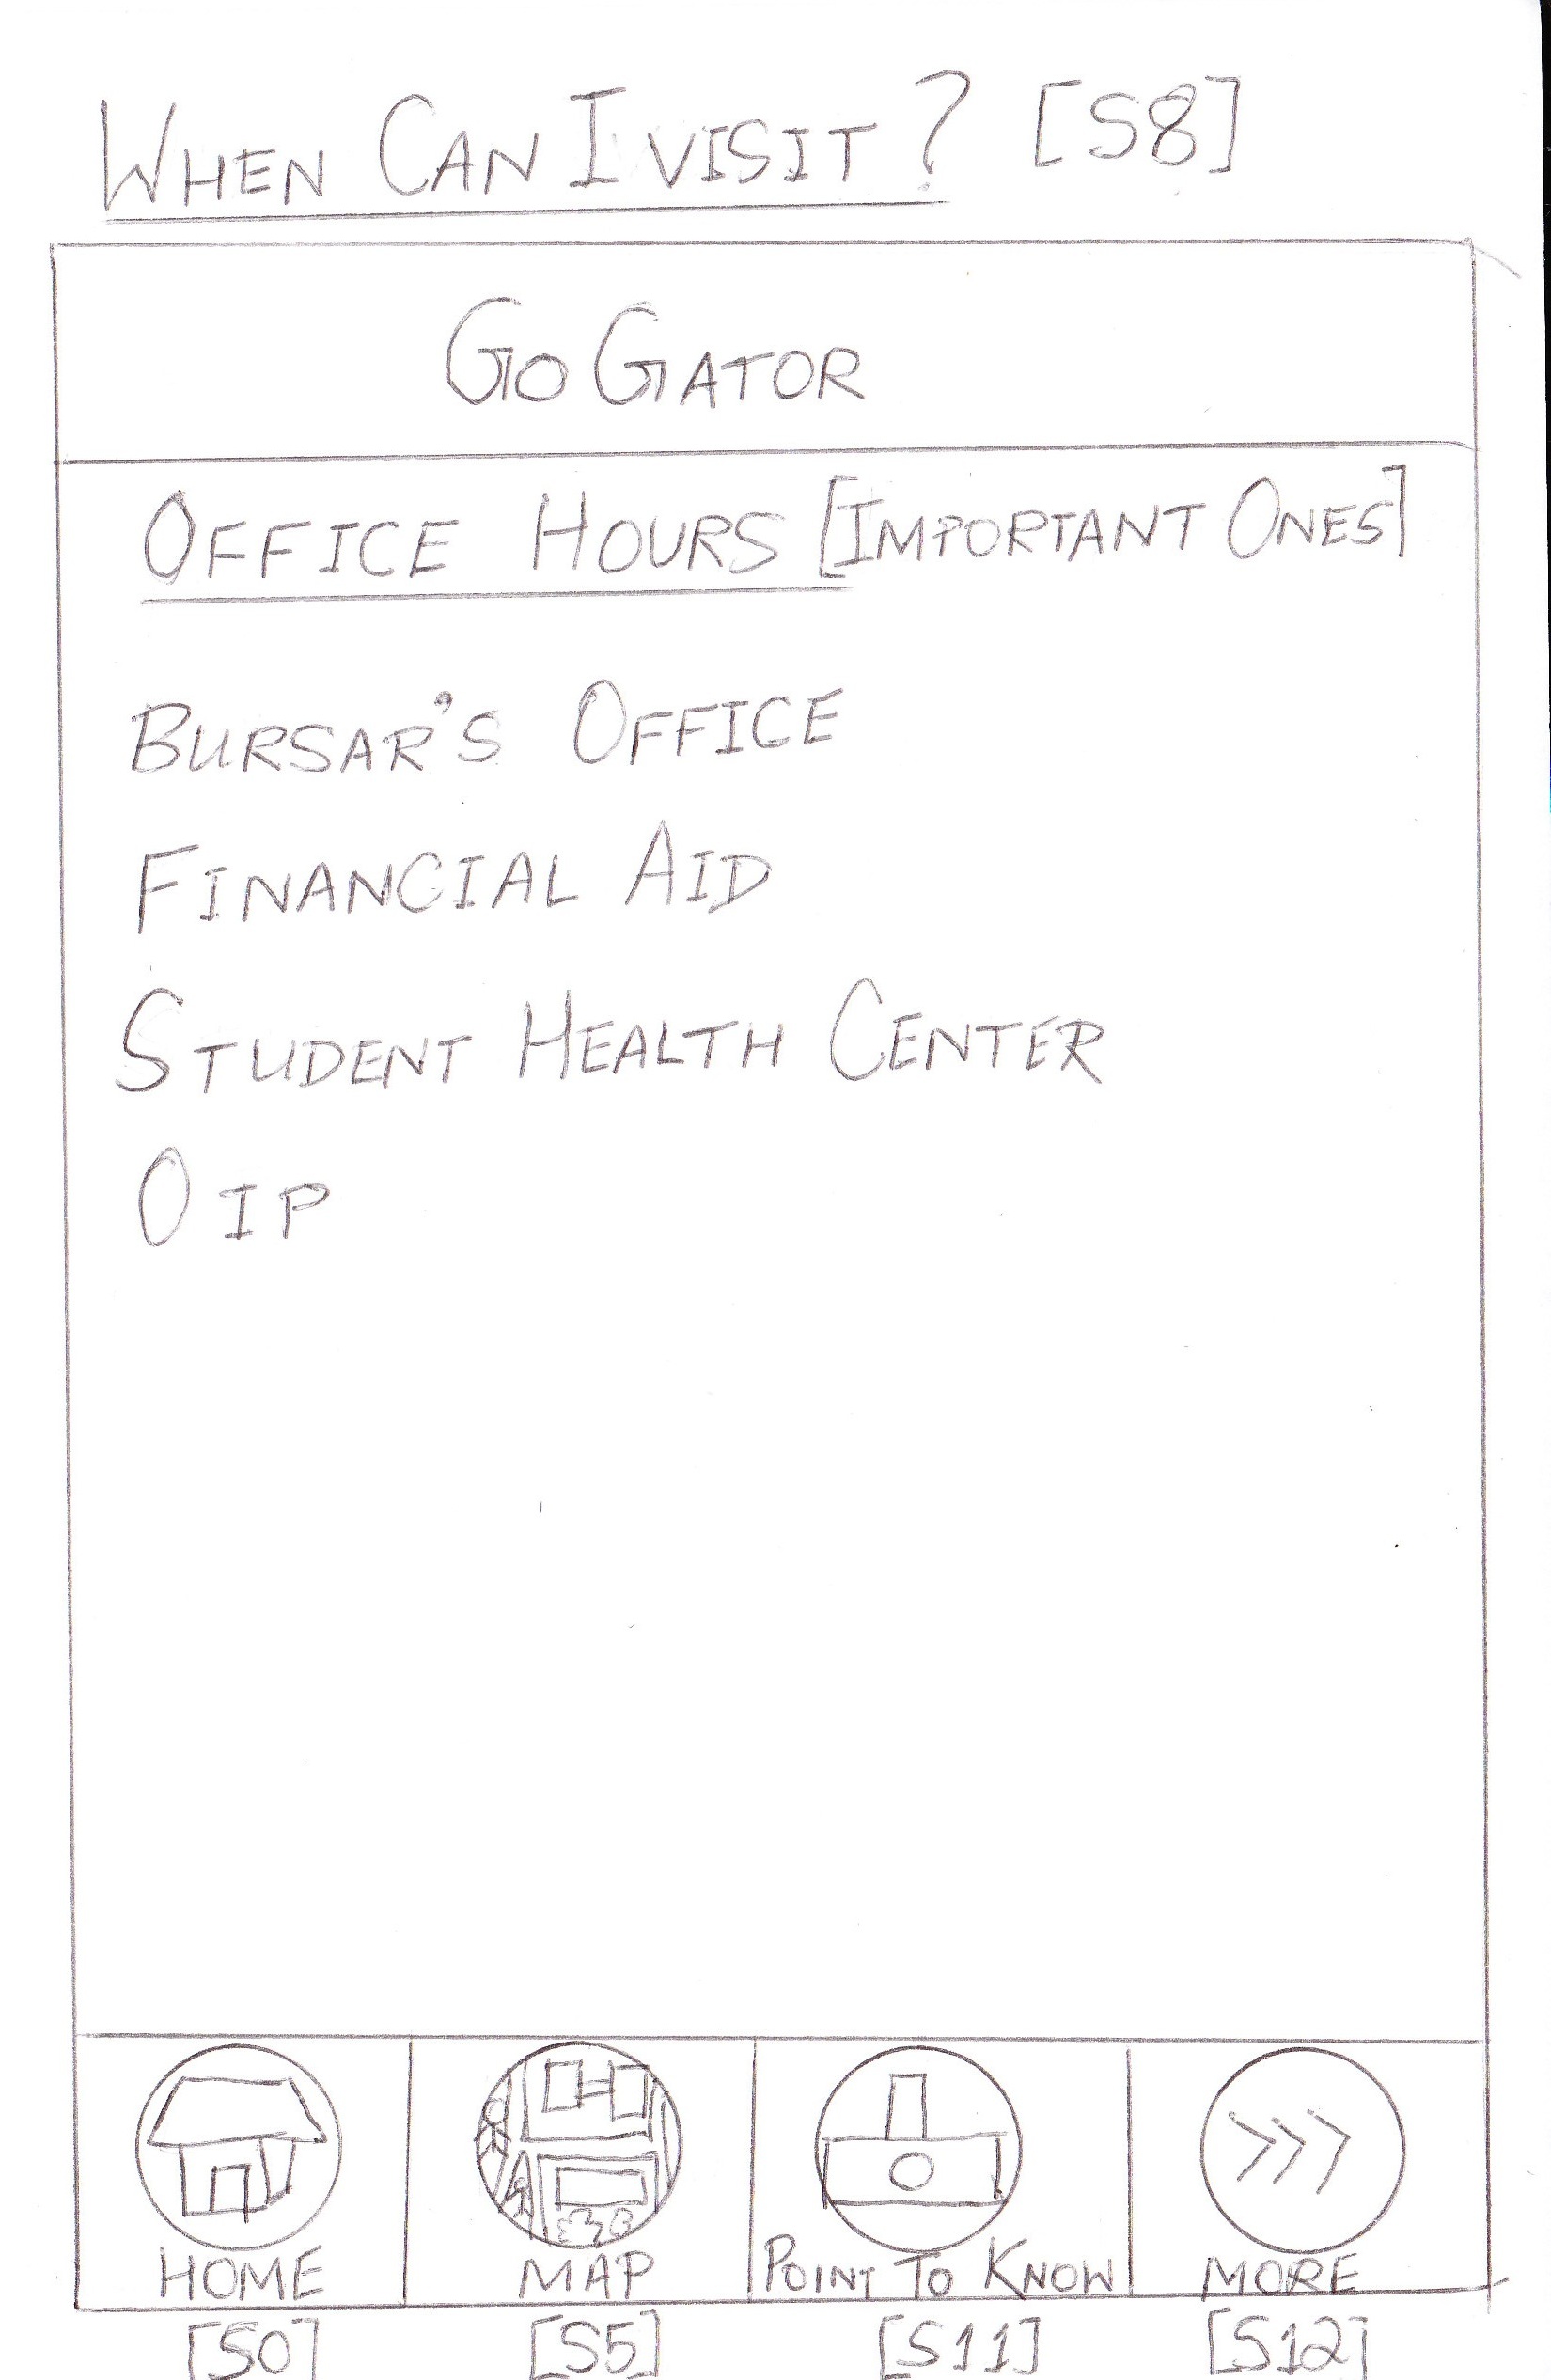 WHEN CAN I VISIT? [S8]
GO GATOR
OFFICE HOURS [IMPORTANT ONES]
BURSAR'S OFFICE
FINANCIAL AID
STUDENT HEALTH CENTER
OIP
HOME MAP POINT TO KNOW MORE
[S0] [S5] [S11] [S12]